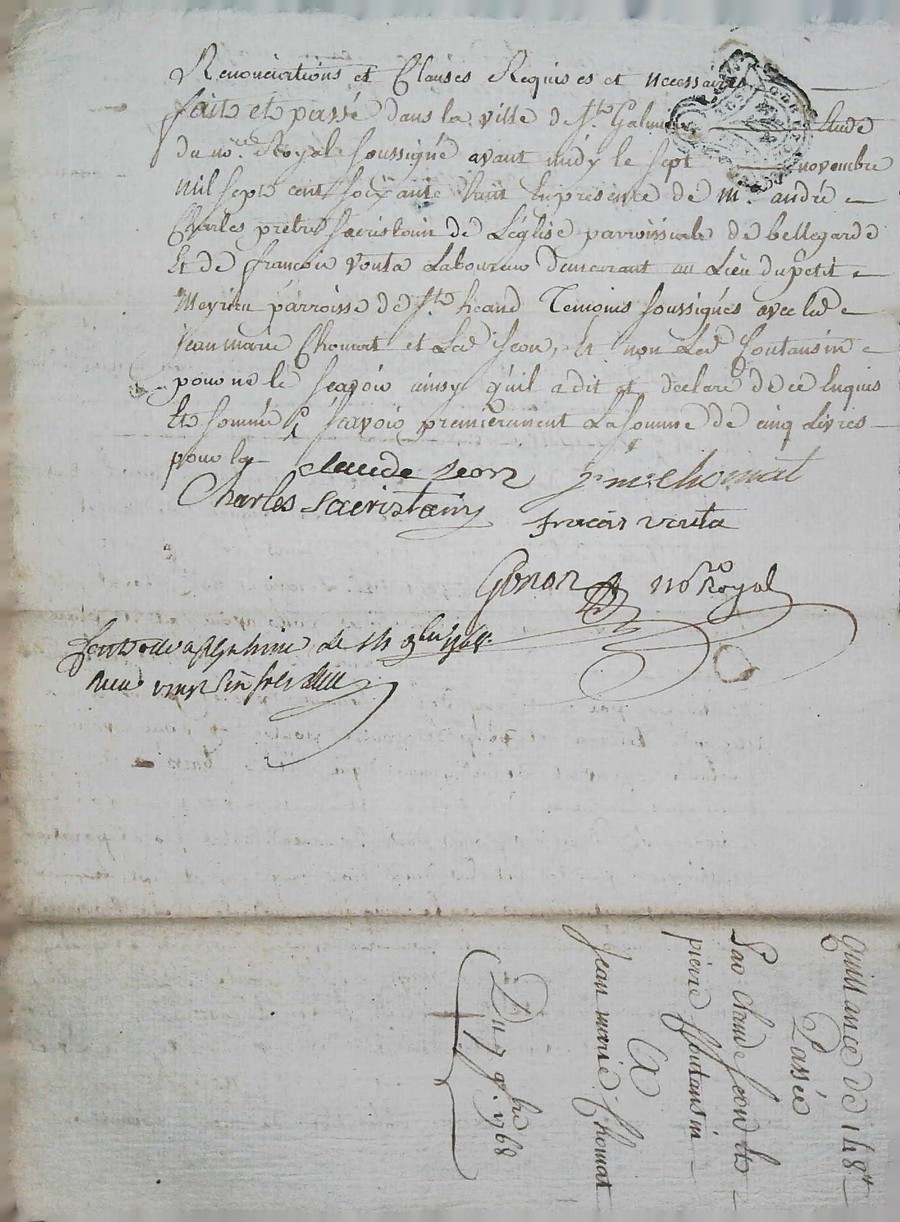 Renonciations et Clauses Requises et necessaires
faite et passé dans la ville de St. Galmier Etude
du nore. Royal soussigné avant midy le sept novembre
mil sept cent soixante huit En présence de mre. andré
Charles prêtre sacristain de L'église parroissiale de bellegarde
Et de françois venta Laboureur demeurant au Lieu du petit
Meyrieu parroisse de St. heand Temoins soussignés avec led
jean marie Chomat et Led jeon, Et non Led foutansin
pour ne le sçavoir ainsy qu'il a dit et declaré de ce Enquis
Et sommé sçavoir premierement La somme de cinq Livres
pour la
claude jeon j. m. chomat
Charles Sacristain francois venta
Gonon noro Royal
a St Galmier le 9bre 1768
vingt
quittance de 148ᵗᵗ
Passée
Par claude jeon et
pierre foutansin
A
Jean marie Chomat
Du 7 9bre 1768